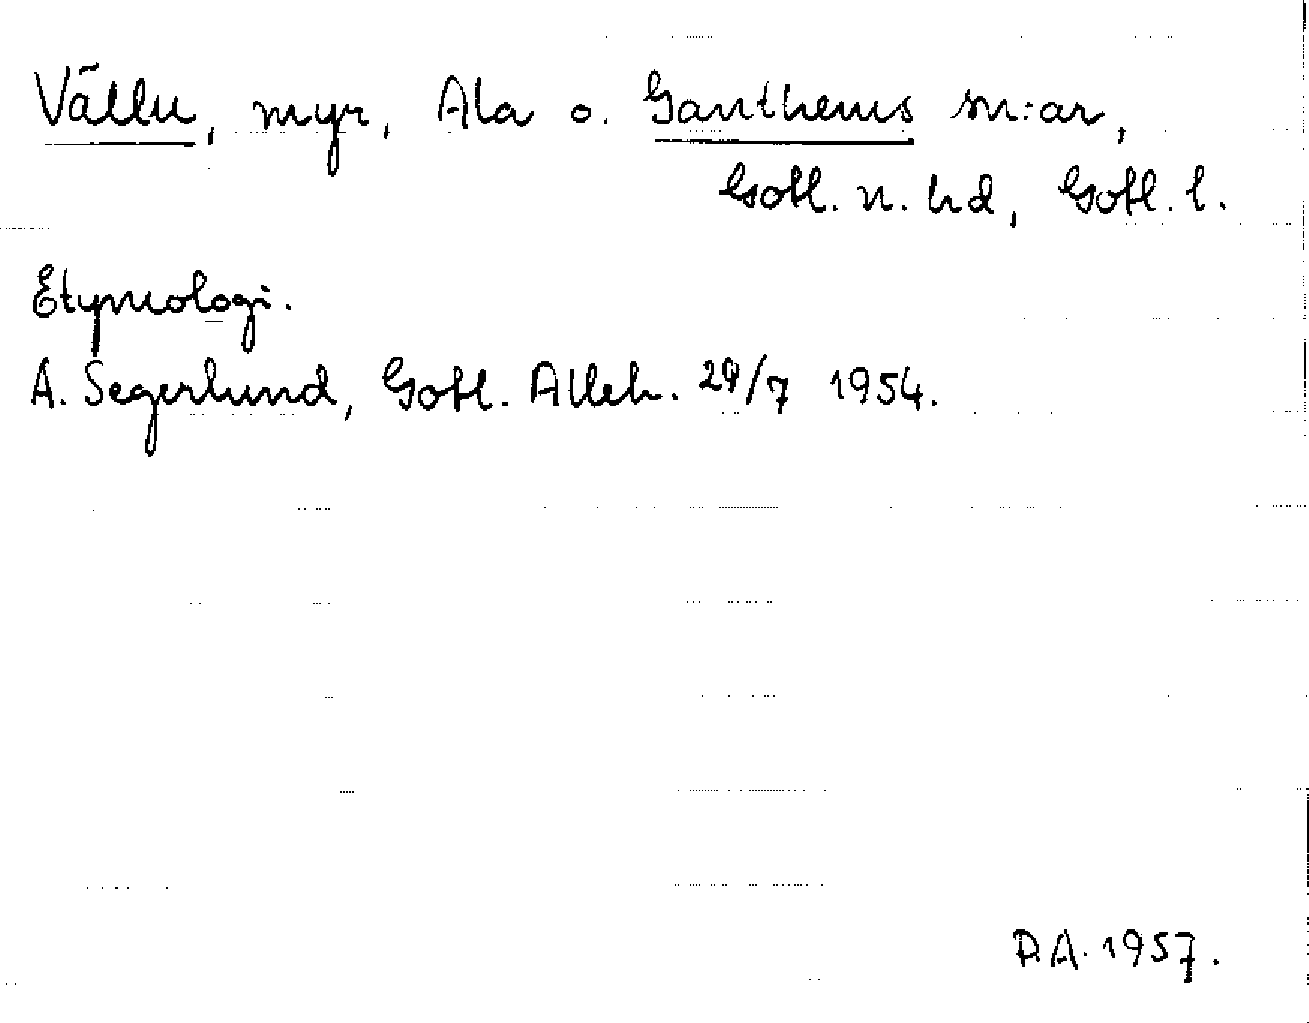 Vällu, myr, Ala o. Ganthems sn:ar,
Gotl. n. hd, Gotl. l.
Etymologi.
A. Segerlund, Gotl. Alleh. 29/7 1954.
P.A. 1957.